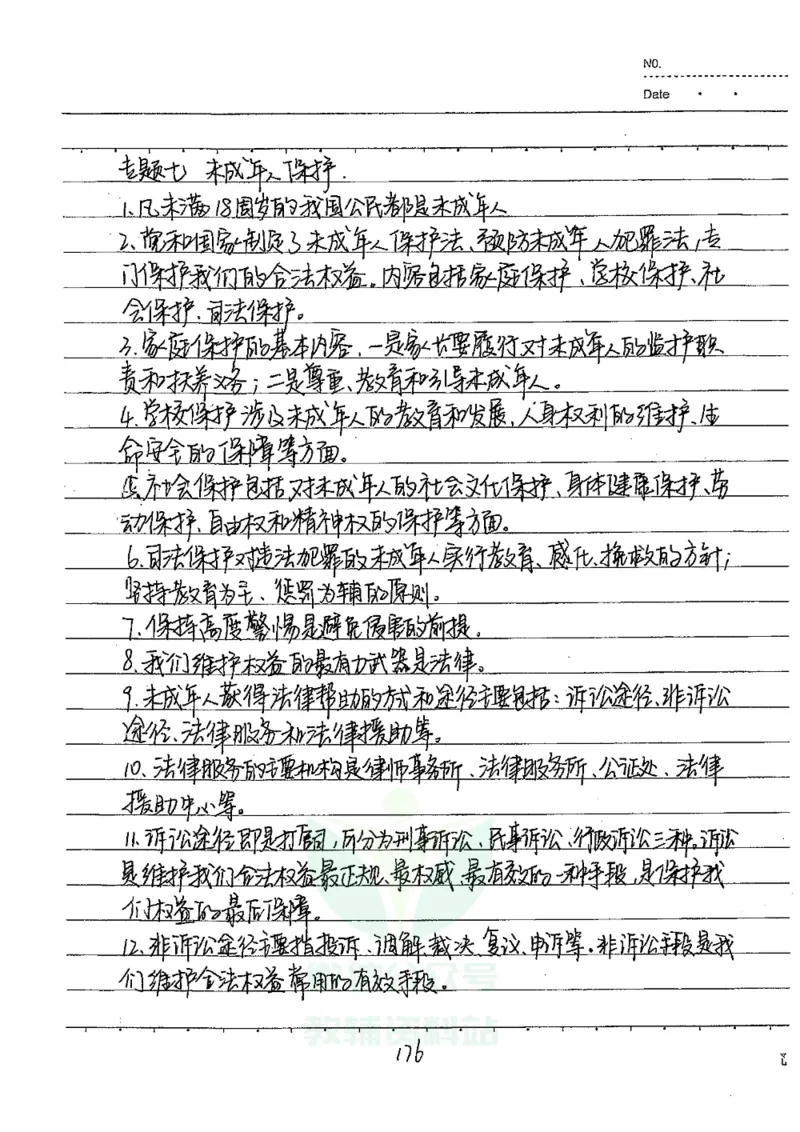 NO.
Date
专题七 未成年人保护.
1.凡未满18周岁的我国公民都是未成年人
2.党和国家制定了未成年人保护法、预防未成年人犯罪法,专
门保护我们的合法权益。内容包括家庭保护、学校保护、社
会保护、司法保护。
3.家庭保护的基本内容,一是家长要履行对未成年人的监护职
责和抚养义务;二是尊重、教育和引导未成年人。
4.学校保护涉及未成年人的教育和发展,人身权利的维护、生
命安全的保障等方面。
5.社会保护包括对未成年人的社会文化保护、身体健康保护、劳
动保护、自由权和精神权的保护等方面。
6.司法保护对违法犯罪的未成年人实行教育、感化、挽救的方针;
坚持教育为主、惩罚为辅的原则。
7.保持高度警惕是避免侵害的前提。
8.我们维护权益的最有力武器是法律。
9.未成年人获得法律帮助的方式和途径主要包括:诉讼途径、非诉讼
途径、法律服务和法律援助等。
10、法律服务的主要机构是律师事务所、法律服务所、公证处、法律
援助中心等。
11.诉讼途径即是打官司,可分为刑事诉讼、民事诉讼、行政诉讼三种。诉讼
是维护我们合法权益最正规、最权威、最有效的一种手段,是保护我
们权益的最后保障。
12、非诉讼途径主要指投诉、调解、裁决、复议、申诉等。非诉讼手段是我
们维护合法权益常用的有效手段。
教辅资料站
176